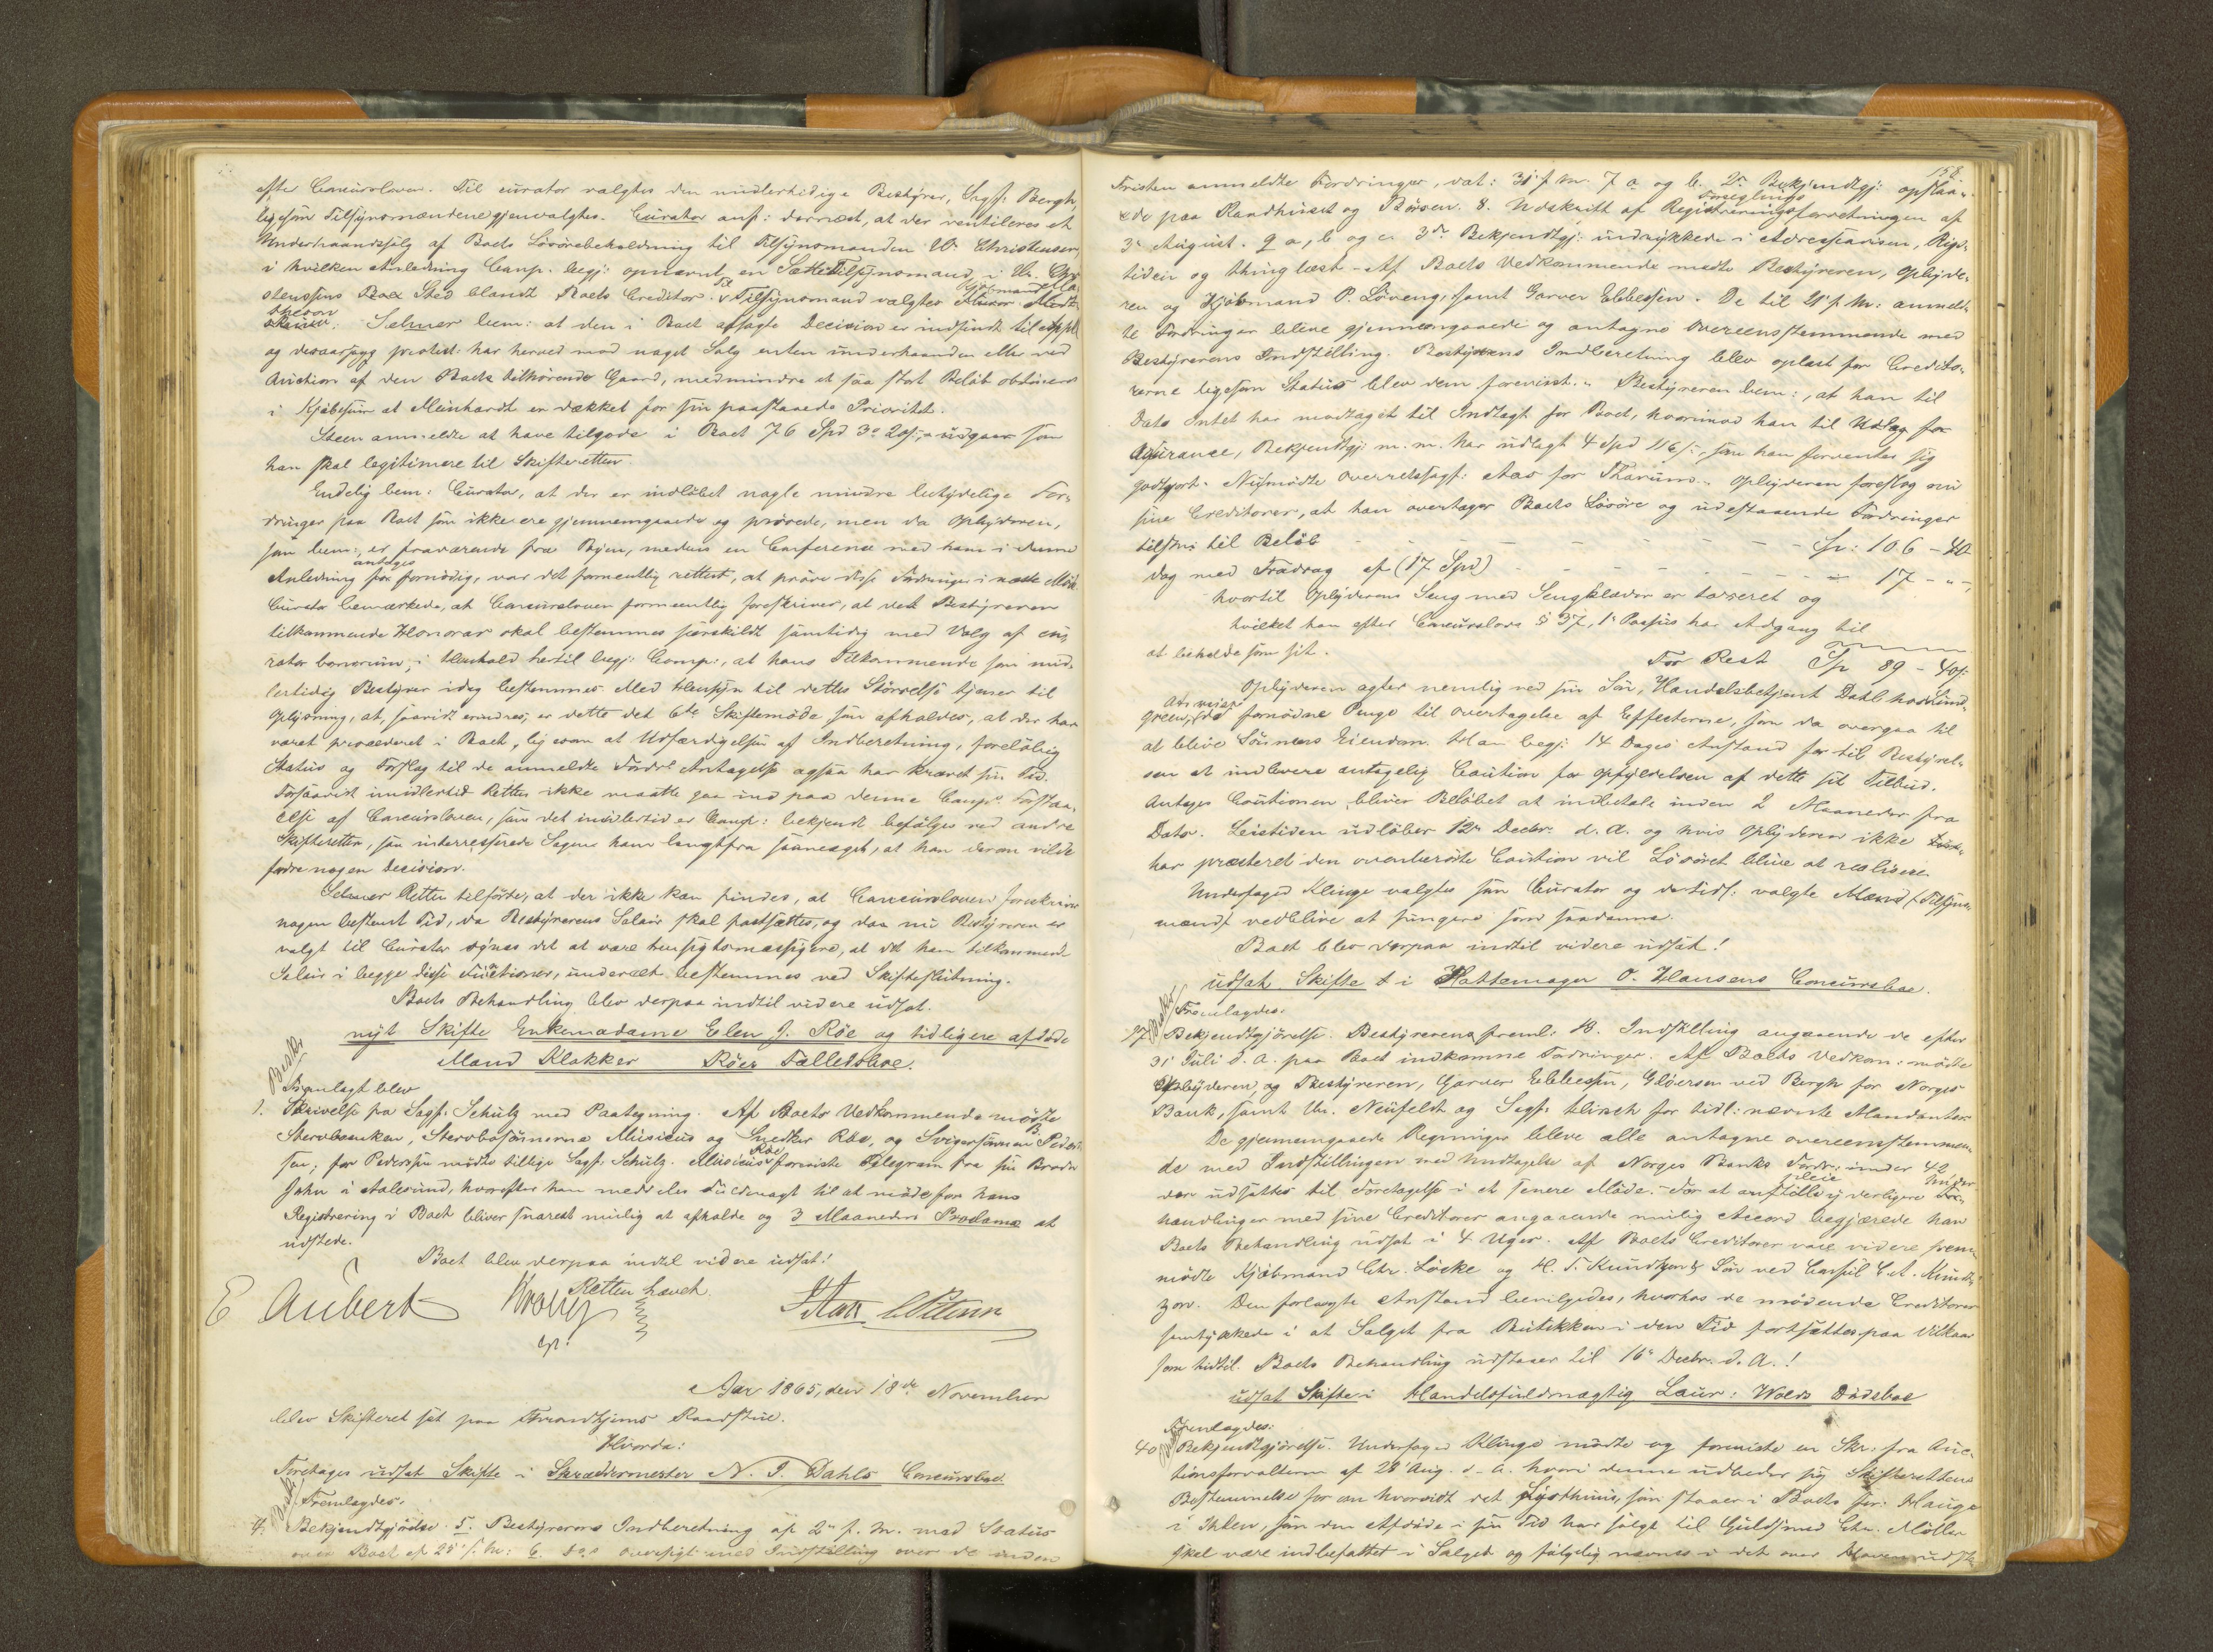 efter Concursloven. Til curator valgtes den midlertidige Bestyrer, Sagf: Bergh,
ligesom Tilsynsmændene gjenvalgtes. Curator anf: dernæst, at der ventileres et
Underhaandssalg af Boets Løsørebeholdning til Tilsynsmanden W. Christensen,
i hvilken Anledning Comp. begj: opnævnt en Sættetilsynsmand i Hr. Chri-
stensens Sted blandt Boets Creditor. Til Tilsynsmand valgtes Kjøbmand
Selmer bem: at den i Boet afsagte Decision er indstevnt til
og desaarsag protest: har herved mod noget Salg enten underhaanden eller ved
Auction af den Boets tilhørende Gaard, medmindre et saa stort Beløb obtineres
i Kjøbesum at Meinhardt er dækket for sin paastaaede Prioritet.
Steen anmeldte at have tilgode i Boet 76 Spd 3 20 s, som
han skal legitimere til Skifteretten.
Endelig bem: Curator, at der er indløbet nogle mindre betydelige For-
dringer paa Boet som ikke ere gjennemgaaede og prøvede, men da Opbyderen,
som bem:, er fraværende fra Byen, medens en Conference med ham i denne
Anledning antages fornødig, var det formentlig rettest, at prøve disse Fordringer i næste Møde.
Curator bemærkede, at Concursloven formentlig foreskriver, at det Bestyreren
tilkommende Honorar skal bestemmes særskildt samtidig med Valg af cu-
rator bonorum; i Henhold hertil begj: Comp:, at hans Tilkommende som mid-
lertidig Bestyrer idag bestemmes. Med Hensyn til dettes Størrelse tjener til
Oplysning, at, saavidt erindres, er dette det 6te Skiftemøde som afholdes, at der har
været procederet i Boet, ligesom at Udfærdigelsen af Indberetning, foreløbig
Status og Forslag til de anmeldte Fordrs Antagelse ogsaa har krævet sin Tid.
Forsaavidt imidlertid Retten ikke maatte gaa ind paa denne Comps Forstaa-
else af Concursloven, som det imidlertid er Comp: bekjendt befølges ved andre
Skifteretter, saa interesserede Sagen ham langtfra saameget, at han derom vilde
fordre nogen Decision.
Selmer Retten tilførte, at der ikke kan findes, at Concursloven foreskriver
nogen bestemt Tid, da Bestyrerens Salair skal fastsættes, og da nu Bestyreren er
valgt til Curator synes det at være hensigtsmæssigere, at det ham tilkommende
Salair i begge disse Functioner, underet bestemmes ved Skifteslutning.
Boets Behandling blev derpaa indtil videre udsat.
nyt Skifte Enkemadame Elen J. Röe og tidligere afdøde
Mand Klokker Röes Fællesboe.
Beskr
Fremlagt blev
1. Skrivelse fra Sagf: Schulz med Paategning. Af Boets Vedkommende mødte
Stervboenken, Stervbosønnerne Musicus og Snedker Röe, og Svigersønnen B. Peder-
sen; for Pedersen mødte tillige Sagf: Schulz. Musicus Röe foreviste Telegram fra sin Broder
John i Aalesund, hvorefter han meddeles Fuldmagt til at møde for ham
Registrering i Boet bliver snarest mulig at afholde og 3 Maaneders Proclama at
udstede.
Boet blev derpaa indtil videre udsat!
Retten hævet.
E Aubert
Aar 1865, den 18de November
blev Skifteret sat paa Throndhjems Raadstue.
Hvorda:
Foretages udsat Skifte i Skræddermester N. J. Dahls Concursboe.
Beskr
Fremlagdes:
4. Bekjendtgjørelse. 5. Bestyrerens Indberetning af 2n f. M. med Status
over Boet af 28 f. M: 6. Oversigt med Indstilling over de inden
158.
Fristen anmeldte Fordringer, dat: 31 f. M. 7 a og b. 2de Bekjendtgj: opslaa-
ede paa Raadhuset og Børsen. 8. Udskrift af Forseglings Registreringsforretningen af
3. August. 9 a, b og c. 3de Bekjendtgj: indrykkede i Adresseavisen, Rigs-
tiden og thinglæst. – Af Boets Vedkommende mødte Bestyreren, Opbyde-
ren og Kjøbmand P. Löveng, samt Garver Ebbesen. De til 21 f. M: anmeld-
te Fordringer bleve gjennemgaaede og antagne overeensstemmende med
Bestyrerens Indstilling. Bestyrerens Indberetning blev oplæst for Credito-
rerne ligesom Status blev dem forevist. Bestyreren bem:, at han til
Dato Intet har modtaget til Indtægt for Boet, hvorimod han til Udlæg for
Assurance, Bekjendtgj: m. m. har udlagt 4 Spd 116 s, som han forventer sig
godtgjort. Nu mødte Overretssagf: Aas for Tharum. Opbyderen foreslog nu
sine Creditorer, at han overtager Boets Løsøre og udestaaende Fordringer
tilsm: til Beløb - - - - - - - Sp: 106 – 40
dog med Fradrag af (17 Spd) - - - - - - 17 – " –
hvortil Opbyderens Seng med Sengklæder er taxeret og
hvilket han efter Concurslovs § 37, 1 Passus har Adgang til
at beholde som sit.
For Rest Sp 89 – 40 s.
Opbyderen agter nemlig ved sin Søn, Handelsbetjent Dahl hos Lund-
green, at faae fornødne Penge til Overtagelse af Effecterne, som da overgaa til
at blive Sønnens Eiendom. Han begj: 14 Dages Anstand for til Bestyrel-
sen at indlevere antagelig Caution for Opfyldelsen af dette sit Tilbud.
Antages Cautionen, bliver Beløbet at indbetale inden 2 Maaneder fra
Dato. Leietiden udløber 12te Decbr. d. A. og hvis Opbyderen ikke
har præsteret den ovenberørte Caution vil Løsøret blive at realisere.
Undersaged Klinge valgtes som Curator og de tidl: valgte Mænd (Tilsyns-
mænd) vedblive at fungere som saadanne.
Boet blev derpaa indtil videre udsat!
udsat Skifte i Hattemager O. Hansens Concursboe.
Beskr
Fremlagdes:
17 Bekjendtgjørelse. Bestyrerens freml: 18. Indstilling angaaende de efter
31 Juli d. A. paa Boet indkomne Fordringer. Af Boets Vedkom: mødte
Opbyderen, og Bestyreren, Garver Ebbesen, Glöersen ved Bergh for Norges
Bank, samt Hr. Neufeldt og Sagf: Hirsch for tidl: nævnte Mandanter.
De gjennemgaaede Regninger bleve alle antagne overeensstemmen-
de med Indstillingen med Undtagelse af Norges Banks Fordr: under 42,
der udsattes til Foretagelse i et senere Møde. – For at anstille yderligere Un-
handlinger med sine Creditorer angaaende mulig Accord begjærede han
Boets Behandling udsat i 4 Uger. Af Boets Creditorer vare videre frem-
mødte Kjøbmand Chr. Löcke og H. F. Kundtzon & Søn ved Consul C. A. Kundt-
zon. Den forlangte Anstand bevilgedes, hvorhos de mødende Creditorer
samtykkede i at Salget fra Butikken i den Tid fortsættes paa Vilkaar
som hidtil. Boets Behandling udstaaer til 16 Decbr. d. A.!
udsat Skifte i Handelsfuldmægtig Laur: Wolds Dødsboe
Fremlagdes:
40 Bekjendtgjørelse. Undersaged Klinge mødte og foreviste en Skr: fra Auc-
tionsforvalteren af 28 Aug. d. A. hvori denne udbeder sig Skifterettens
Bestemmelse for om hvorvidt det Lysthuus, som staaer i Boets før: Hauge
i Ihlen, som den Afdøde i sin Tid har solgt til Guldsmed Chr. Möller
skal være indbefattet i Salget og følgelig nævnes i det over Haven